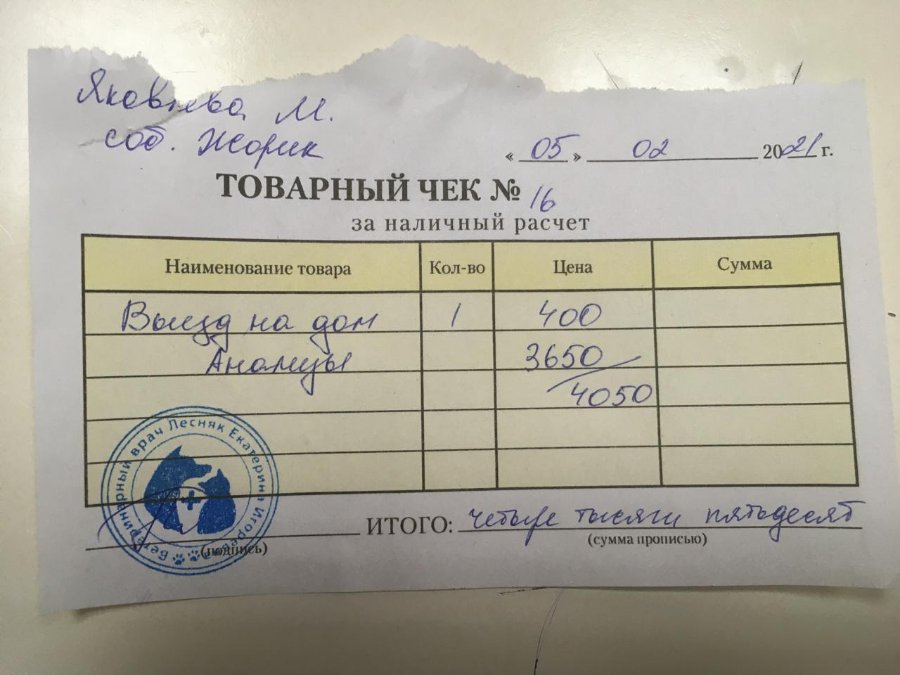 Яковлева М.
соб. Жорик
« 05 » 02 2021 г.
ТОВАРНЫЙ ЧЕК № 16
за наличный расчет
Наименование товара Кол-во Цена Сумма
Выезд на дом 1 400
Анализы 3650
4050
Ветеринарный врач Лесняк Екатерина Игоревна
ИТОГО: четыре тысячи пятьдесят
(подпись) (сумма прописью)